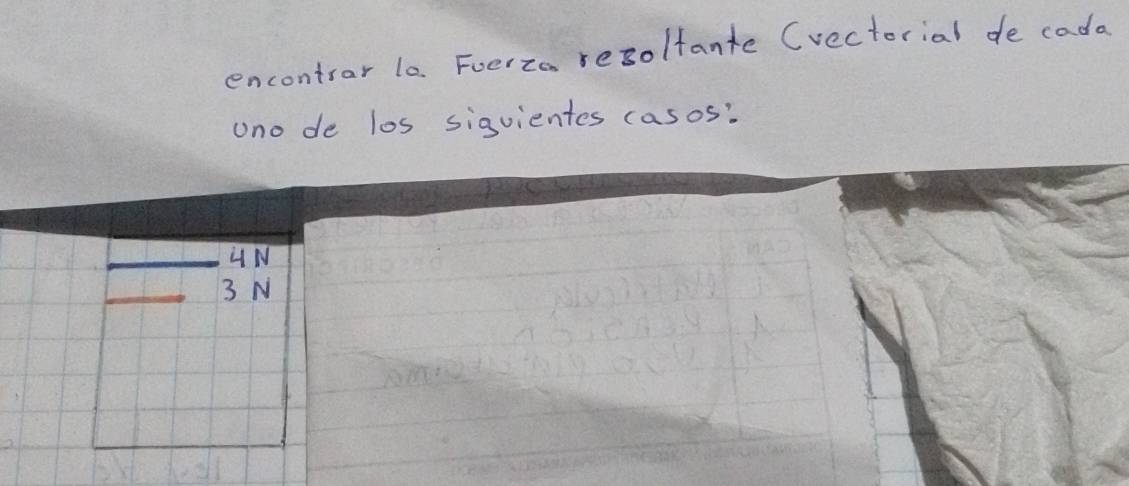 encontrar la Fuerza resoltante (vectorial de cada
uno de los siguientes casos:
4 N
3 N